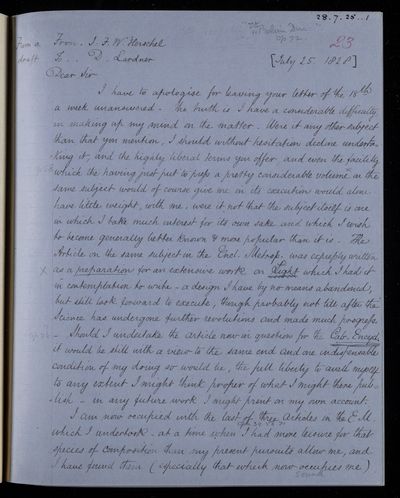 28.7.28..1
23
From a
draft
From.. J. F. W. Herschel
To.. D. Lardner
[July 25 1828]
Dear Sir
I have to apologise for leaving your letter of the 18th
a week unanswered. The truth is I have a considerable difficulty
in making up my mind on the matter. Were it any other subject
than that you mention, I should without hesitation decline underta-
king it, and the highly liberal terms you offer and even the facility
which the having just put to press a pretty considerable volume on the
same subject would of course give me in its execution would alone
have little weight with me, were it not that the subject itself is one
in which I take much interest for its own sake and which I wish
to become generally better known & more popular than it is. The
Article on the same subject in the Encl. Metrop. was expressly written
x as a preparation for an extensive work on Light which I had it
in contemplation to write - a design I have by no means abandoned,
but still look forward to execute, though probably not till after the
Science has undergone further revolutions and made much progress.
Should I undertake the article now in question for the Cab. Encycl.
it would be still with a view to the same end and one indispensable
condition of my doing so would be, the full liberty to avail myself
to any extent I might think proper of what I might there pub-
-lish - in any future work I might print on my own account.
I am now occupied with the last of three Articles in the E.M.
which I undertook at a time when I had more leisure for that
species of composition than my present pursuits allow me, and
I have found them (especially that which now occupies me)
Sound